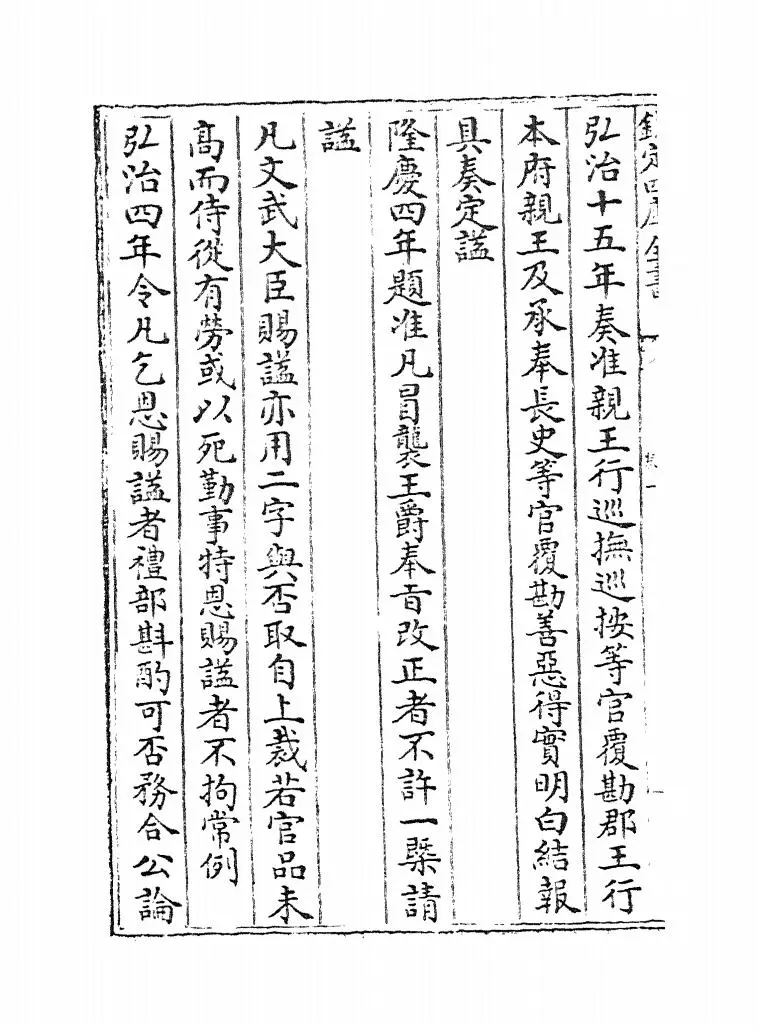 欽定四庫全書
弘治十五年奏准親王行巡撫巡按等官覆勘郡王行
本府親王及承奉長史等官覆勘善惡得實明白結報
具奏定諡
隆慶四年題准凡冒襲王爵奉旨改正者不許一槩請
諡
凡文武大臣賜諡亦用二字與否取自上裁若官品未
高而侍從有勞或以死勤事特恩賜諡者不拘常例
弘治四年令凡乞恩賜諡者禮部斟酌可否務合公論